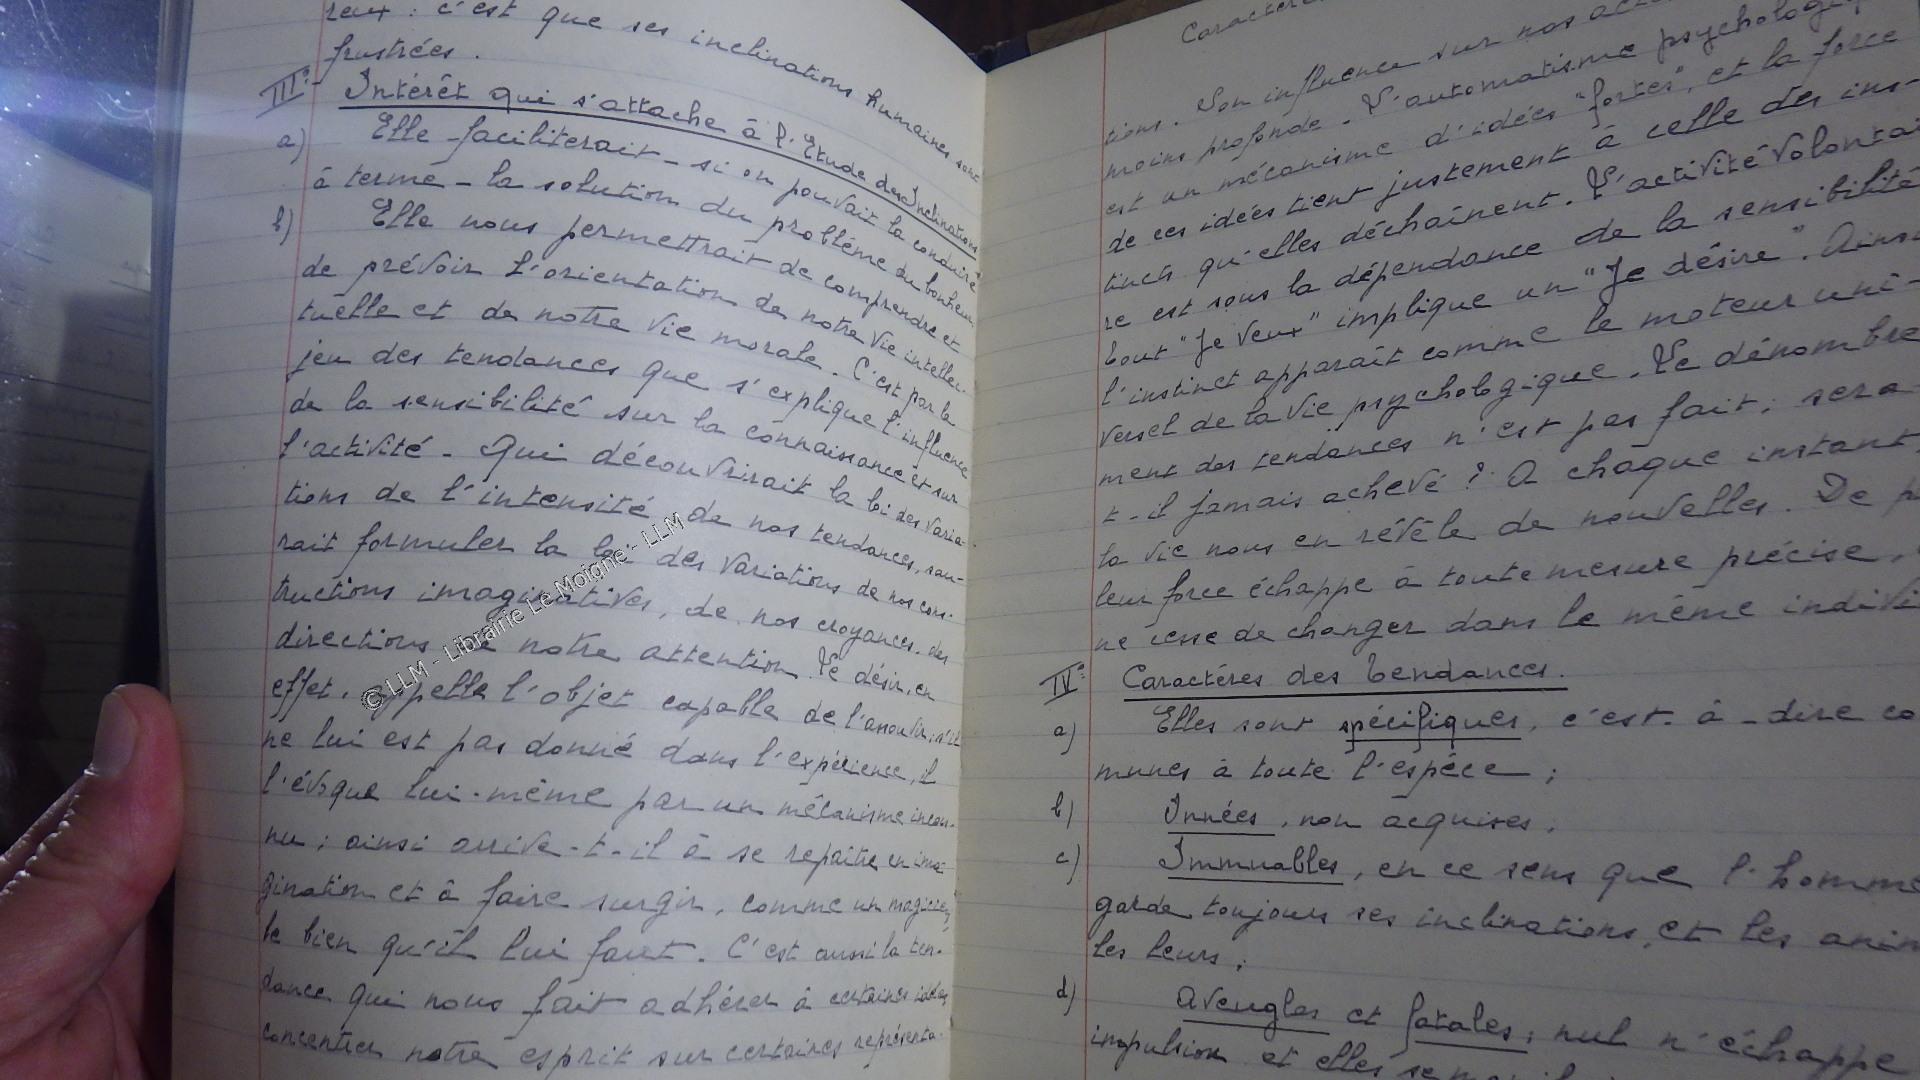 reux : c'est que ses inclinations humaines sont
frustrées .
III°- Intérêt qui s'attache à l'Etude des Inclinations
a) Elle faciliterait - si on pouvait la conduire
à terme - la solution du problème du bonheur.
b) Elle nous permettrait de comprendre et
de prévoir l'orientation de notre vie intellec-
tuelle et de notre vie morale. C'est par le
jeu des tendances que s'explique l'influence
de la sensibilité sur la connaissance et sur
l'activité - Qui découvrirait la loi des varia-
tions de l'intensité de nos tendances, sau-
rait formuler la loi des variations de nos cons-
tructions imaginatives, de nos croyances, des
directions de notre attention. Le désir, en
effet, appelle l'objet capable de l'assouvir ; s'il
ne lui est pas donné dans l'expérience, il
l'évoque lui-même par un mécanisme incon-
nu ; ainsi arrive-t-il à se repaître en ima-
gination et à faire surgir, comme un magicien,
le bien qu'il lui faut. C'est aussi la ten-
dance qui nous fait adhérer à certaines idées,
concentrer notre esprit sur certaines représenta-
Caractère
tions. Son influence sur nos
moins profonde. L'automatisme psychologique
est un mécanisme d'idées "fortes", et la force
de ces idées tient justement à celle des ins-
tincts qu'elles déchaînent. L'activité volontai
re est sous la dépendance de la sensibilité
tout "Je veux" implique un "Je désire". Ainsi
l'instinct apparaît comme le moteur uni-
versel de la vie psychologique. Le dénombre
ment des tendances n'est pas fait ; sera-
t-il jamais achevé ? A chaque instant,
la vie nous en révèle de nouvelles. De p
leur force échappe à toute mesure précise,
ne cesse de changer dans le même indivi
IV°- Caractères des tendances.
a) Elles sont spécifiques, c'est-à-dire co
munes à toute l'espèce ;
b) Innées, non acquises,
c) Immuables, en ce sens que l'homme
garde toujours ses inclinations, et les anim
les leurs ;
d) Aveugles et fatales ; nul n'échappe
impulsion et elles se
© LLM - Librairie Le Moigne - LLM